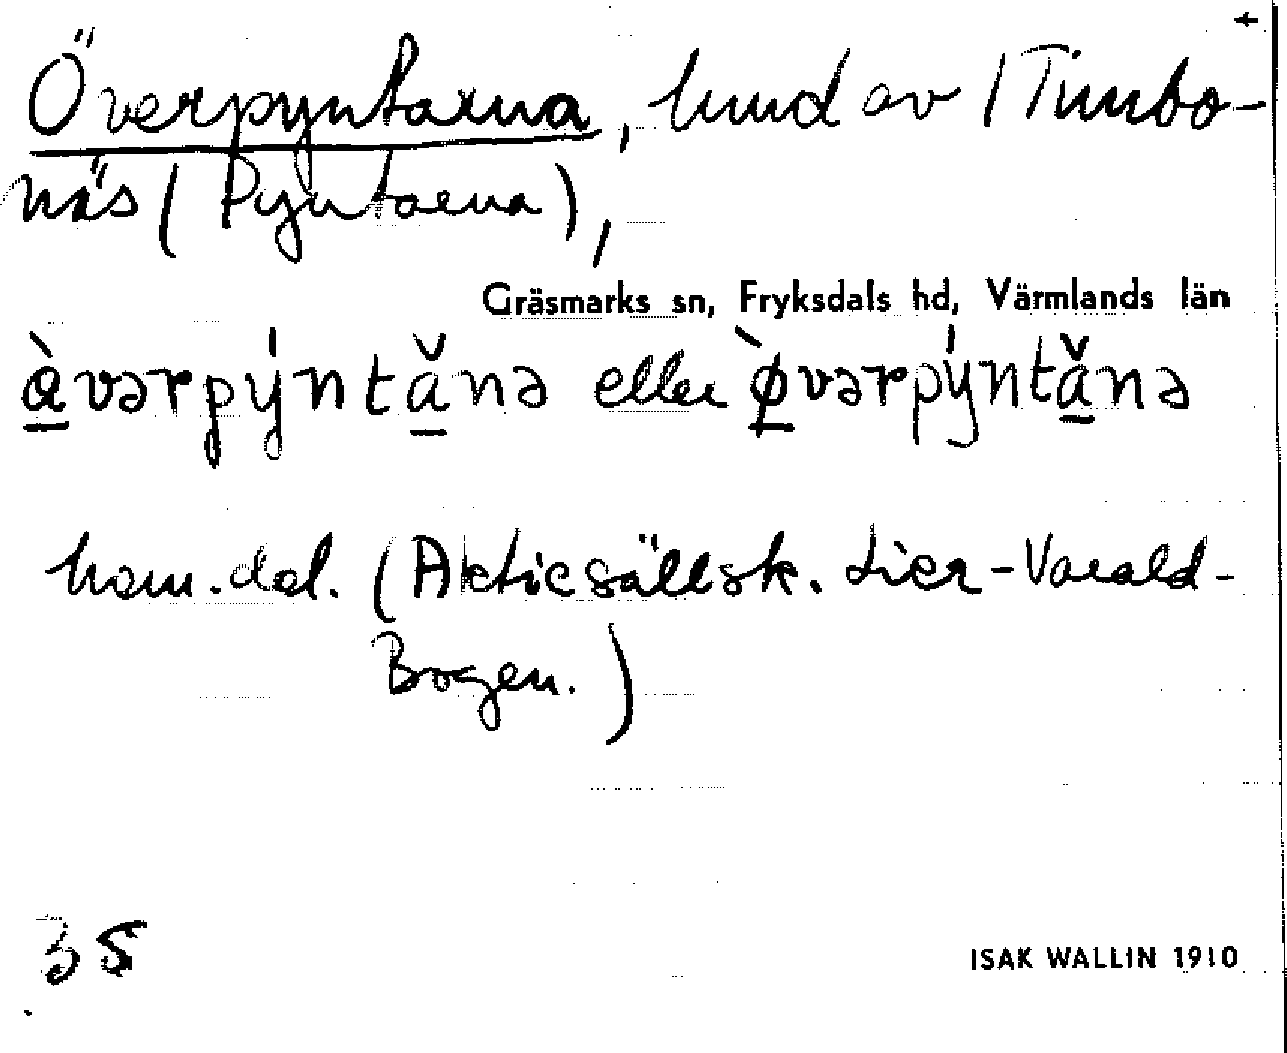 Överpyntarna, hmd av 1 Timbo-
näs (Pyntarna),
Gräsmarks sn, Fryksdals hd, Värmlands län
ą̀vərpýntą̆nə eller ø̱̀vərpýntą̆nə
hem.del. (Aktiesällsk. Lier-Varald-
Bogen.)
35
ISAK WALLIN 1910